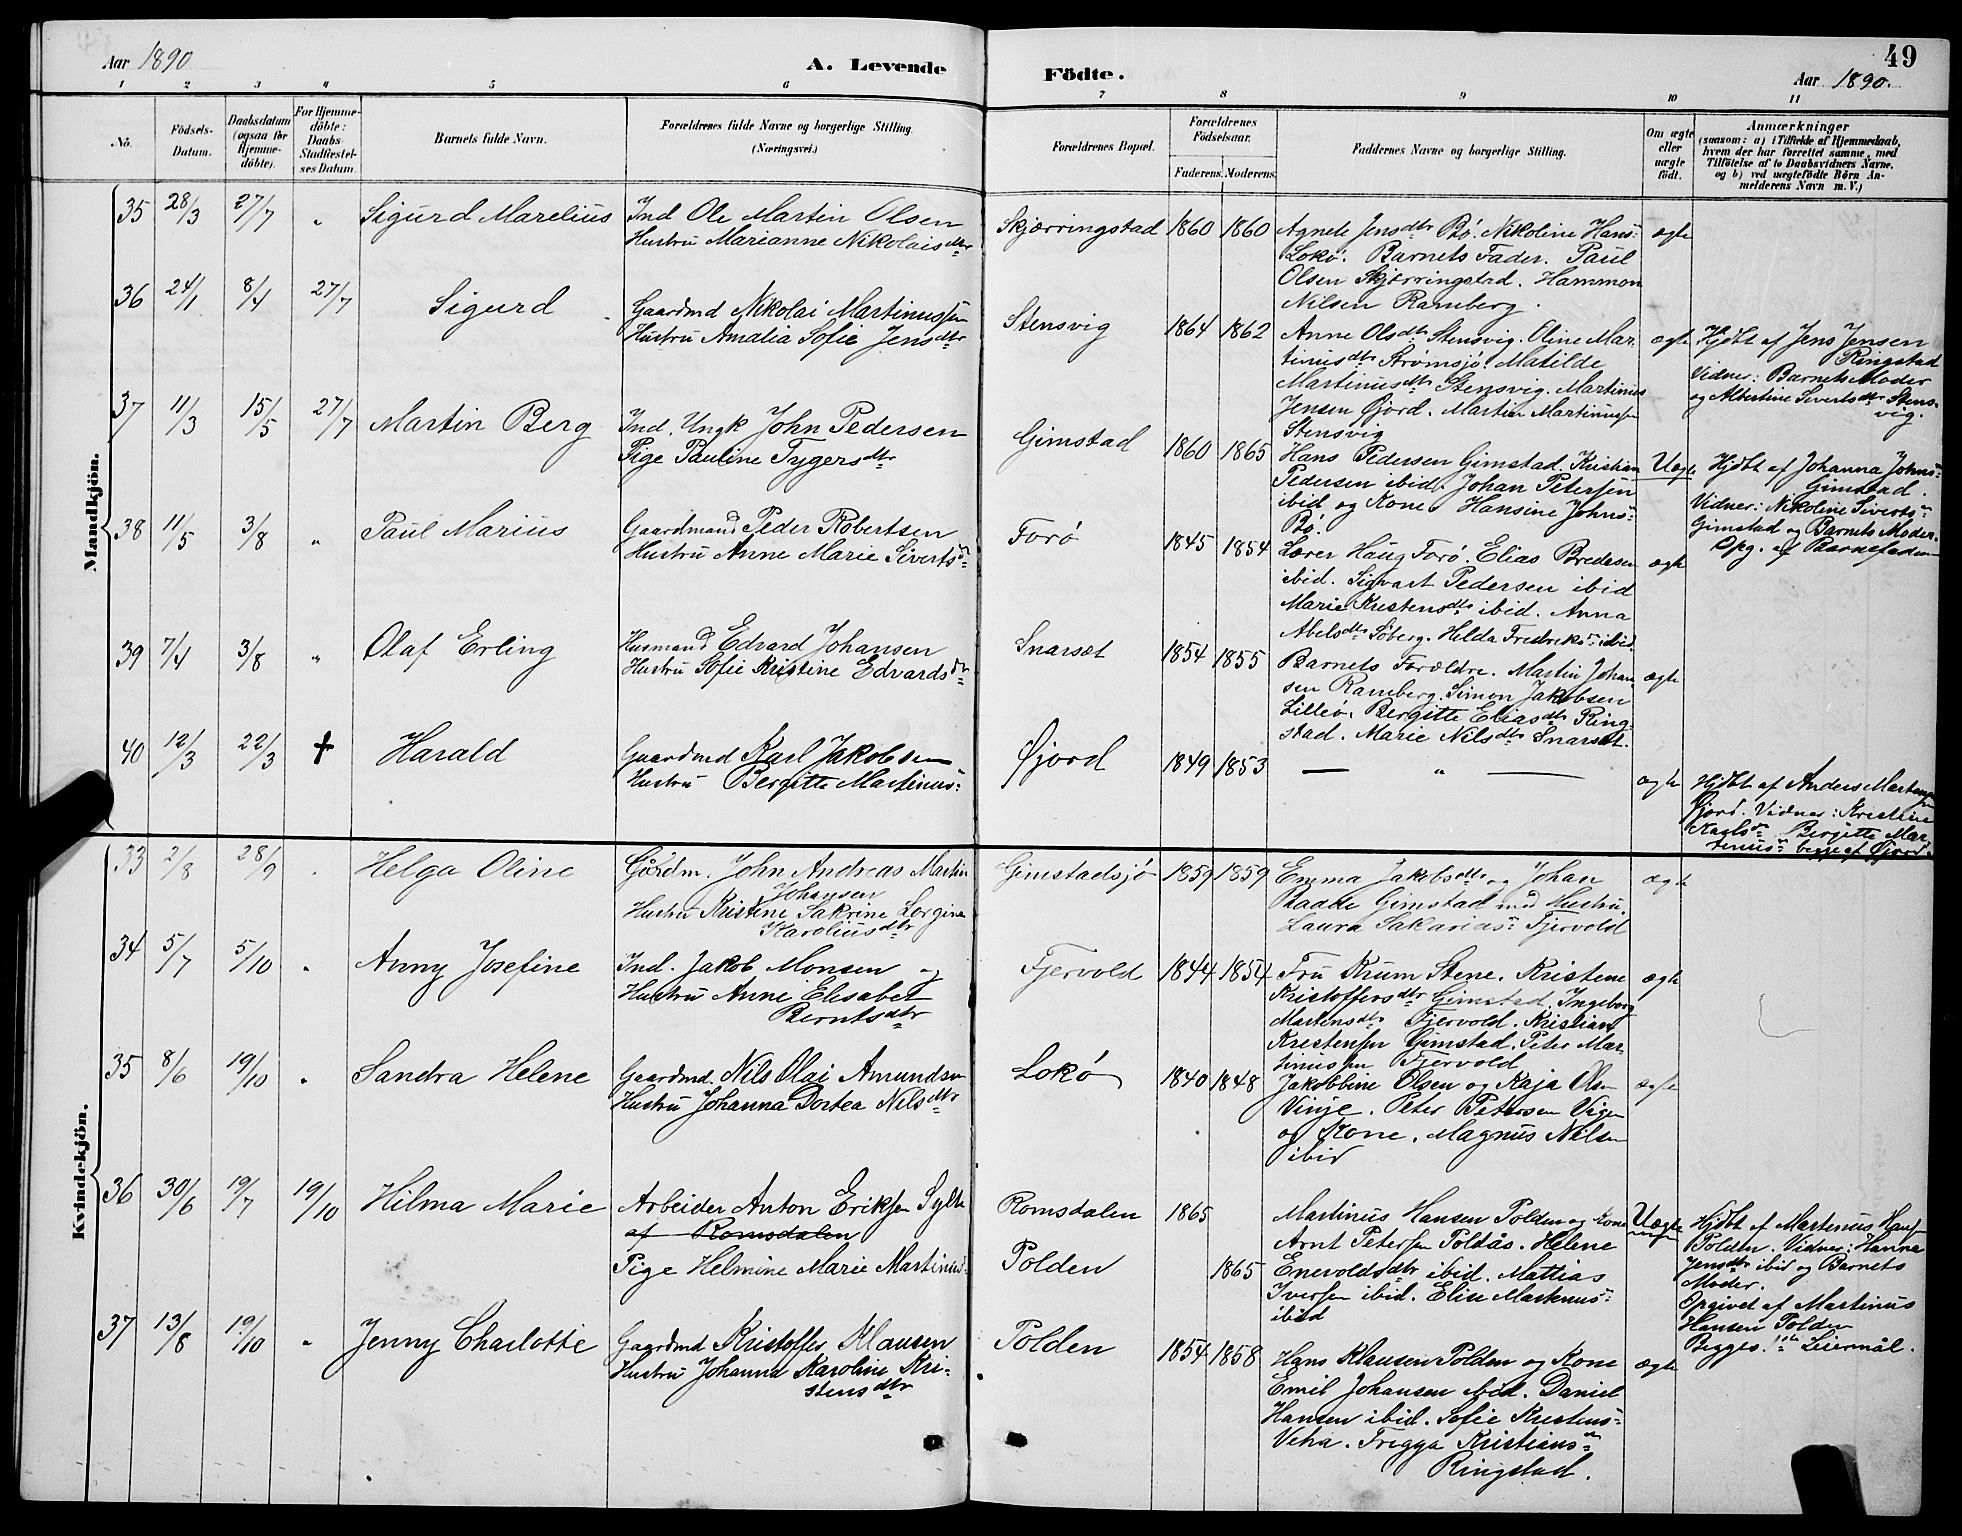 Aar 1890
A. Levende
Födte.
49
Aar 1890.
1 2 3 4 5 6 7 8 9 10 11
No.
Födsels-
Datum.
Daabsdatum
(ogsaa för
Hjemme-
döbte).
For Hjemme-
döbte:
Daabs-
Stadfæstel-
ses Datum.
Barnets fulde Navn.
Forældrenes fulde Navne og borgerlige Stilling.
(Næringsvei.)
Forældrenes Bopæl.
Forældrenes
Födselsaar.
Faderens. Moderens.
Faddernes Navne og borgerlige Stilling.
Om ægte
eller
uægte
födt.
Anmærkninger
(saasom: a) i Tilfælde af Hjemmedaab,
hvem der har forrettet samme, med
Tilföielse af to Daabsvidners Navne,
og b) ved uægtefödte Börn An-
melderens Navn m. V.)
Mandkjön.
35 28/3 27/7 " Sigurd Marelius
Ind Ole Martin Olsen
Hustru Marianne Nikolaisdtr
Skjærringstad 1860 1860
Agnete Jensdtr Bö. Nikoline Hans:
Lokö. Barnets Fader. Paul
Olsen Skjærringstad. Hammon
Nilsen Ramberg.
ægte
36 24/1 8/4 27/7 Sigurd
Gaardmd Nikolai Martinussen
Hustru Amalia Sofie Jensdtr
Stensvig 1864 1862
Anne Olsdtr Stensvig. Oline Mar
tinusdtr Strömsjö. Matilde
Martinusdtr Stensvig. Martinus
Jensen Øjord. Martin Martinussen
Stensvig
ægte
Hjdbt af Jens Jensen
Ringstad
Vidner: Barnets Moder
og Albertine Sivertsdtr Stens-
vig.
37 11/3 15/5 27/7 Martin Berg
Ind. Ungk John Pedersen
Pige Pauline Tygersdtr
Gimstad 1860 1865
Hans Pedersen Gimstad. Kristian
Pedersen ibid. Johan Petersen
ibid og Kone. Hansine Johns:
Bö.
Uægte
Hjdbt af Johanna Johns:
Gimstad.
Vidner: Nikoline Siverts:
Gimstad og Barnets Moder.
Opg. af Barnefaderen
38 11/5 3/8 " Paul Marius
Gaardmand Peder Robertsen
Hustru Anne Marie Siverts:
Forö 1845 1854
Lærer Haug Forö. Elias Bredesen
ibid. Sigvart Pedersen ibid
Marie Kristensdtr ibid. Anna
Abelsdtr Söberg. Helda Fredriks: ibid.
ægte
39 7/4 3/8 " Olaf Erling
Husmand Edvard Johansen
Hustru Sofie Kristine Edvardsdtr
Snarset 1854 1855
Barnets Forældre. Martin Johan
sen Ramberg. Simon Jakobsen
Lilleö. Bergitte Eliasdtr Ring-
stad. Marie Nilsdtr Snarset.
ægte
40 12/3 22/3 + Harald
Gaardmd Karl Jakobsen
Hustru Bergitte Martinus:
Øjord 1849 1853 — " —
ægte
Hjdbt af Anders Martinussen
Øjord. Vidner: Kristine
Karls: Bergitte Mar-
tinus: begge af Øjord.
Kvindekjön.
33 2/8 28/9 " Helga Oline
Gårdm. John Andreas Martin
Johansen
Hustru Kristine Sakrine Lorgine
Karoliusdtr
Gimstadsjö 1859 1859
Emma Jakobsdtr og Johan
Gimstad med Hustru.
Laura Sakarias: Fjervold
ægte
34 5/7 5/10 " Anny Josefine
Ind. Jakob Monsen og
Hustru Anne Elisabet
Berntsdtr
Fjervold 1844 1854
Fru Krum Stene. Kristene
Kristoffersdtr Gimstad. Ingeborg
Martensdtr Fjervold. Kristian
Kristensen Gimstad. Peter Mar-
tinussen Fjervold
ægte
35 8/6 19/10 " Sandra Helene
Gaardmd. Nils Olai Amundsen
Hustru Johanna Dortea Nilsdtr
Lokö 1840 1848
Jakobbine Olsen og Kaja Olsen
Vinje. Peter Petersen Vigen
og Kone. Magnus Nilsen
ibid
ægte
36 30/6 19/7 19/10 Hilma Marie
Arbeider Anton Eriksen Sylte
af Romsdalen
Pige Helmine Marie Martinus:
Romsdalen 1865
Polden 1865
Martinus Hansen Polden og Kone
Arnt Petersen Poldås. Helene
Enevoldsdtr ibid. Mattias
Iversen ibid. Elise Martenus:
ibid
Uægte
Hjdbt af Martenus Hansen
Polden. Vidner: Hanna
Jensdtr ibid og Barnets
Moder.
Opgivet af Martinus
Hansen Polden
Begges 1ste Leiermål.
37 13/8 19/10 " Jenny Charlotte
Gaardmd Kristoffer Klausen
Hustru Johanna Karoline Kri-
stensdtr
Polden 1854 1858
Hans Klausen Polden og Kone
Emil Johansen ibid. Daniel
Hansen ibid. Sofie Kristens:
Veha. Frigga Kristians:
Ringstad.
ægte